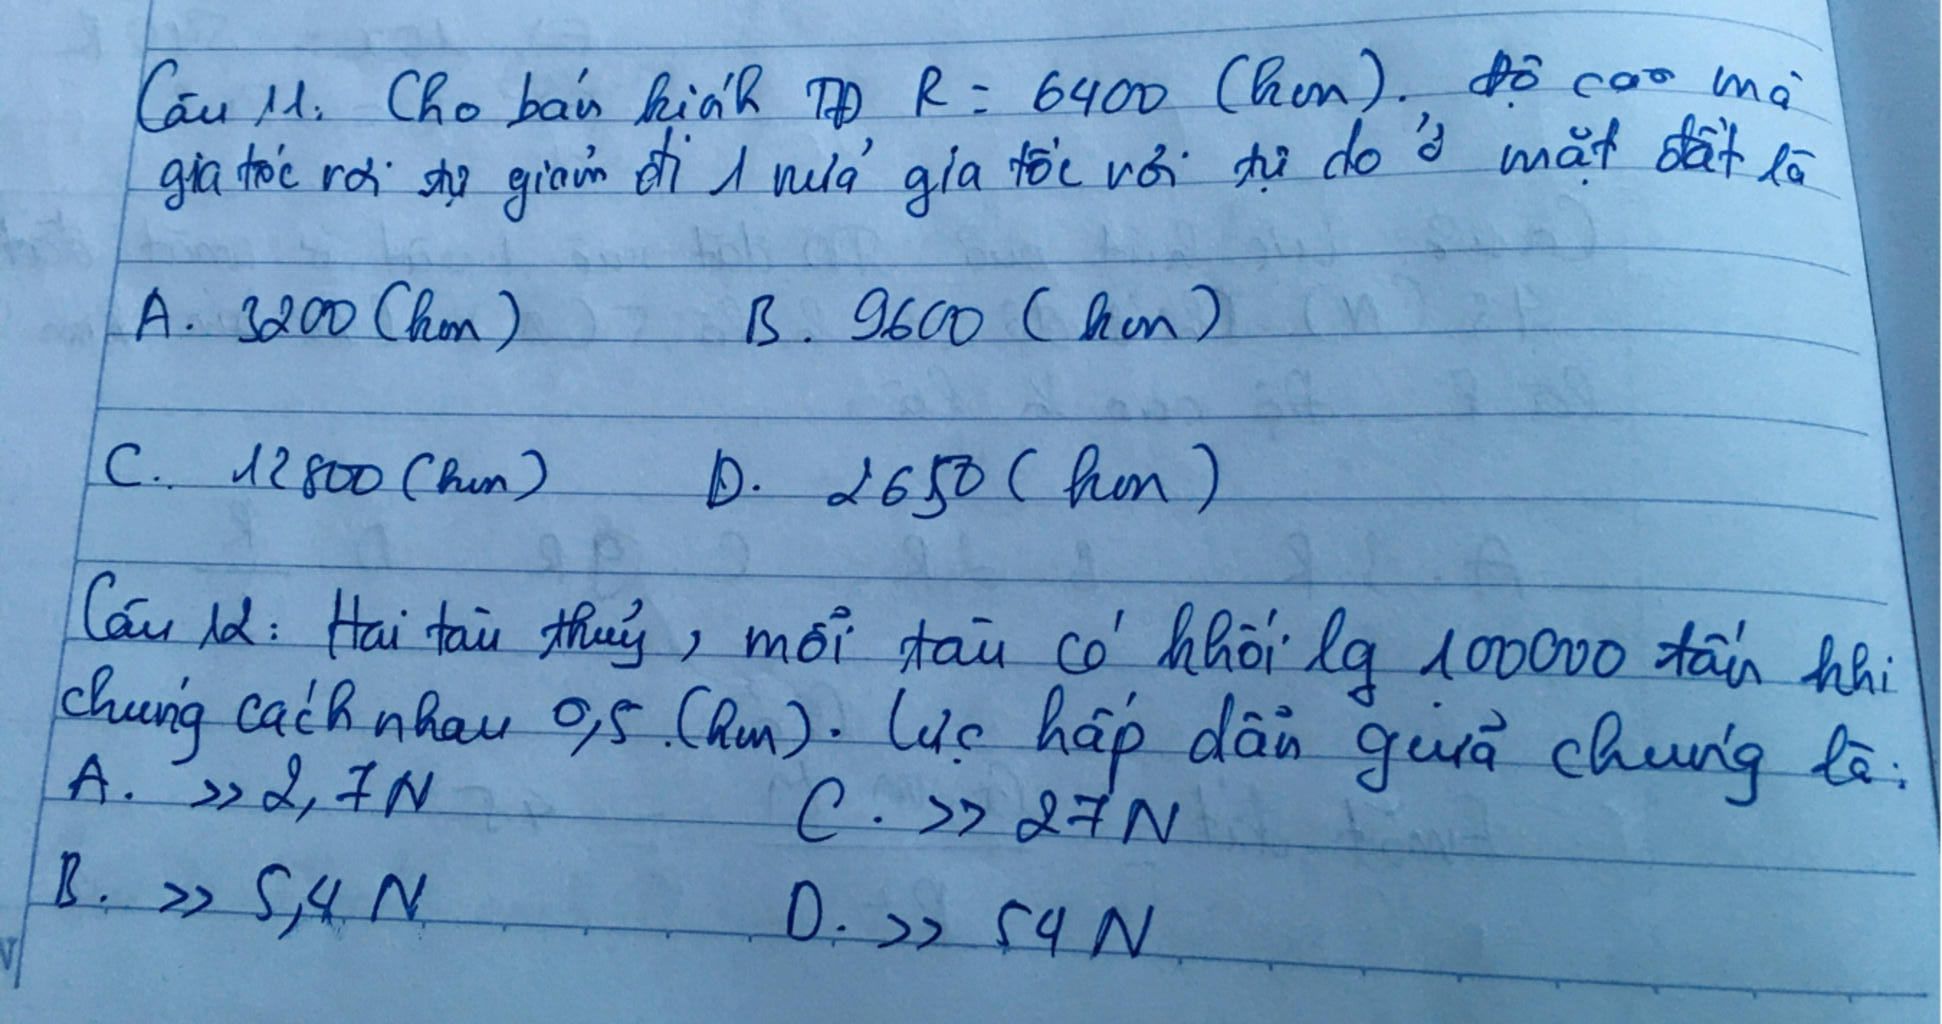 Câu 11. Cho bán kính TĐ R = 6400 (km). Độ cao mà
gia tốc rơi tự giảm đi 1 nửa gia tốc rơi tự do ở mặt đất là
A. 3200 (km) B. 9600 (km)
C. 12800 (km) D. 2650 (km)
Câu 12: Hai tàu thuỷ, mỗi tàu có khối lg 100000 tấn khi
chúng cách nhau 0,5 (km). Lực hấp dẫn giữa chúng là:
A. >> 2,7N C. >> 27N
B. >> 5,4 N D. >> 54 N